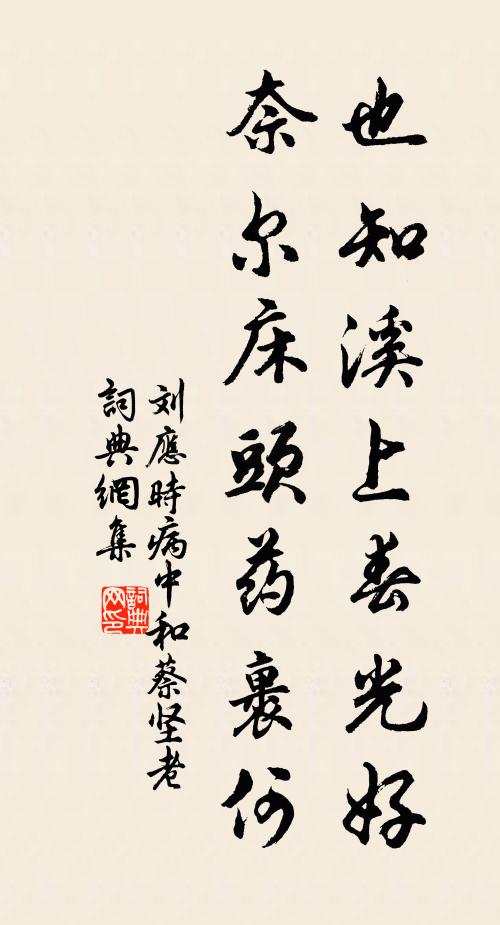 也知溪上春光好
奈尔床頭药裹何
刘應時病中和蔡坚老
詞典網集
詞典
网印